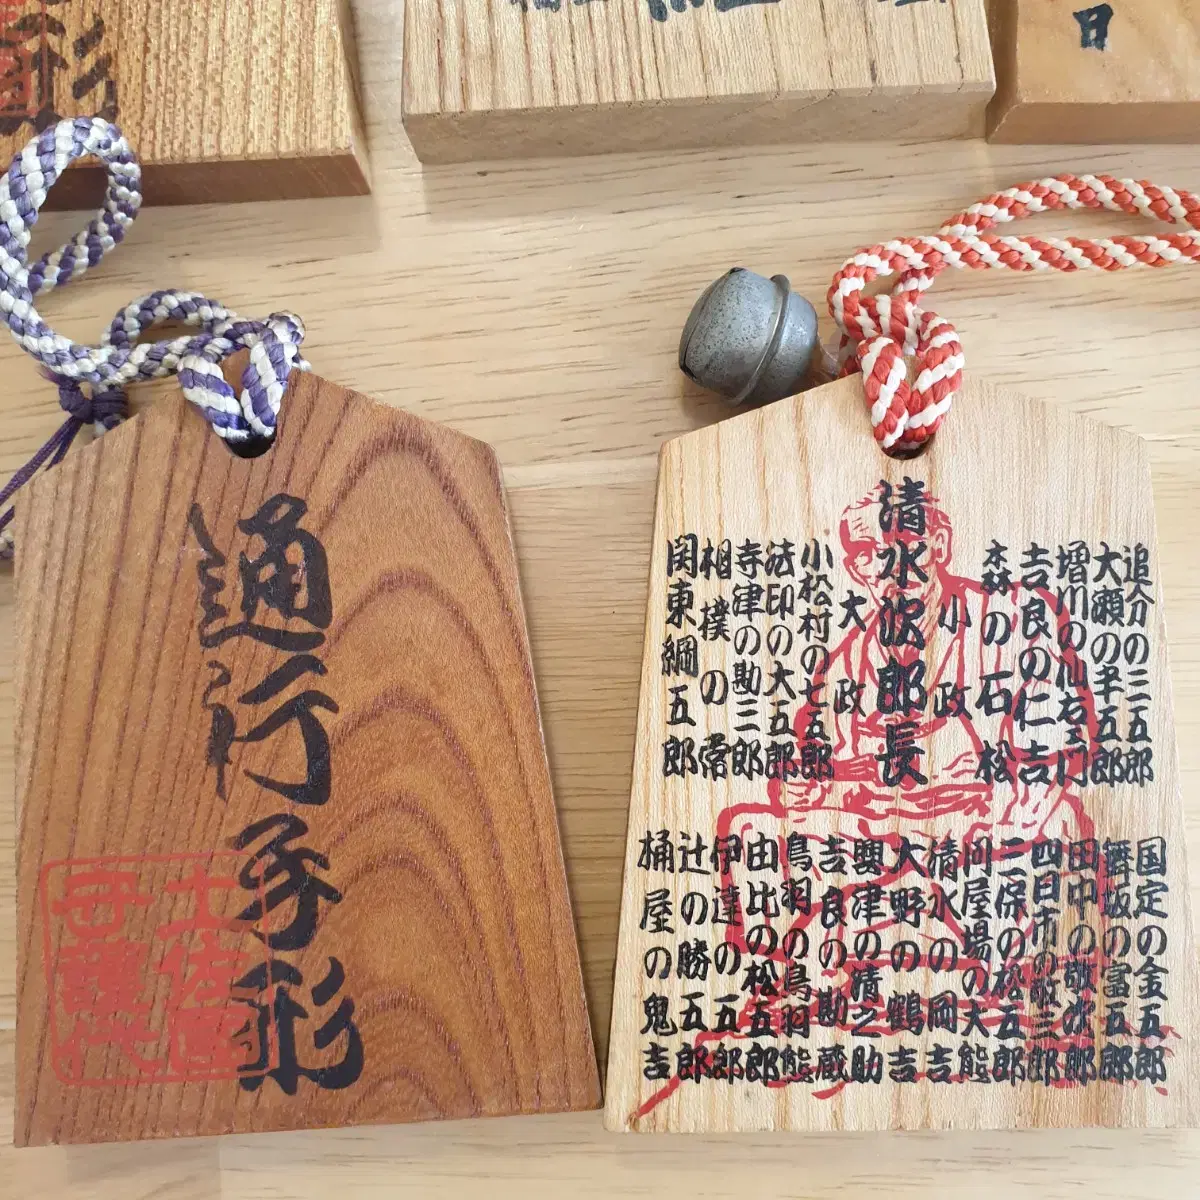 日
通行手形
土佐国
守護代
清水次郎長
小政
森の石松
吉良の仁吉
増川の仙右ェ門
大瀬の半五郎
追分の三五郎
大政
小松村の七五郎
法印の大五郎
寺津の勘三郎
相模の常
関東綱五郎
国定の金五郎
舞坂の富五郎
田中の敬次郎
四日市の敬三郎
三保の松五郎
問屋場の大熊
清水の岡吉
大野の鶴吉
興津の清之助
吉良の勘蔵
鳥羽の鳥羽熊
由比の松五郎
伊達の五郎
辻の勝五郎
桶屋の鬼吉